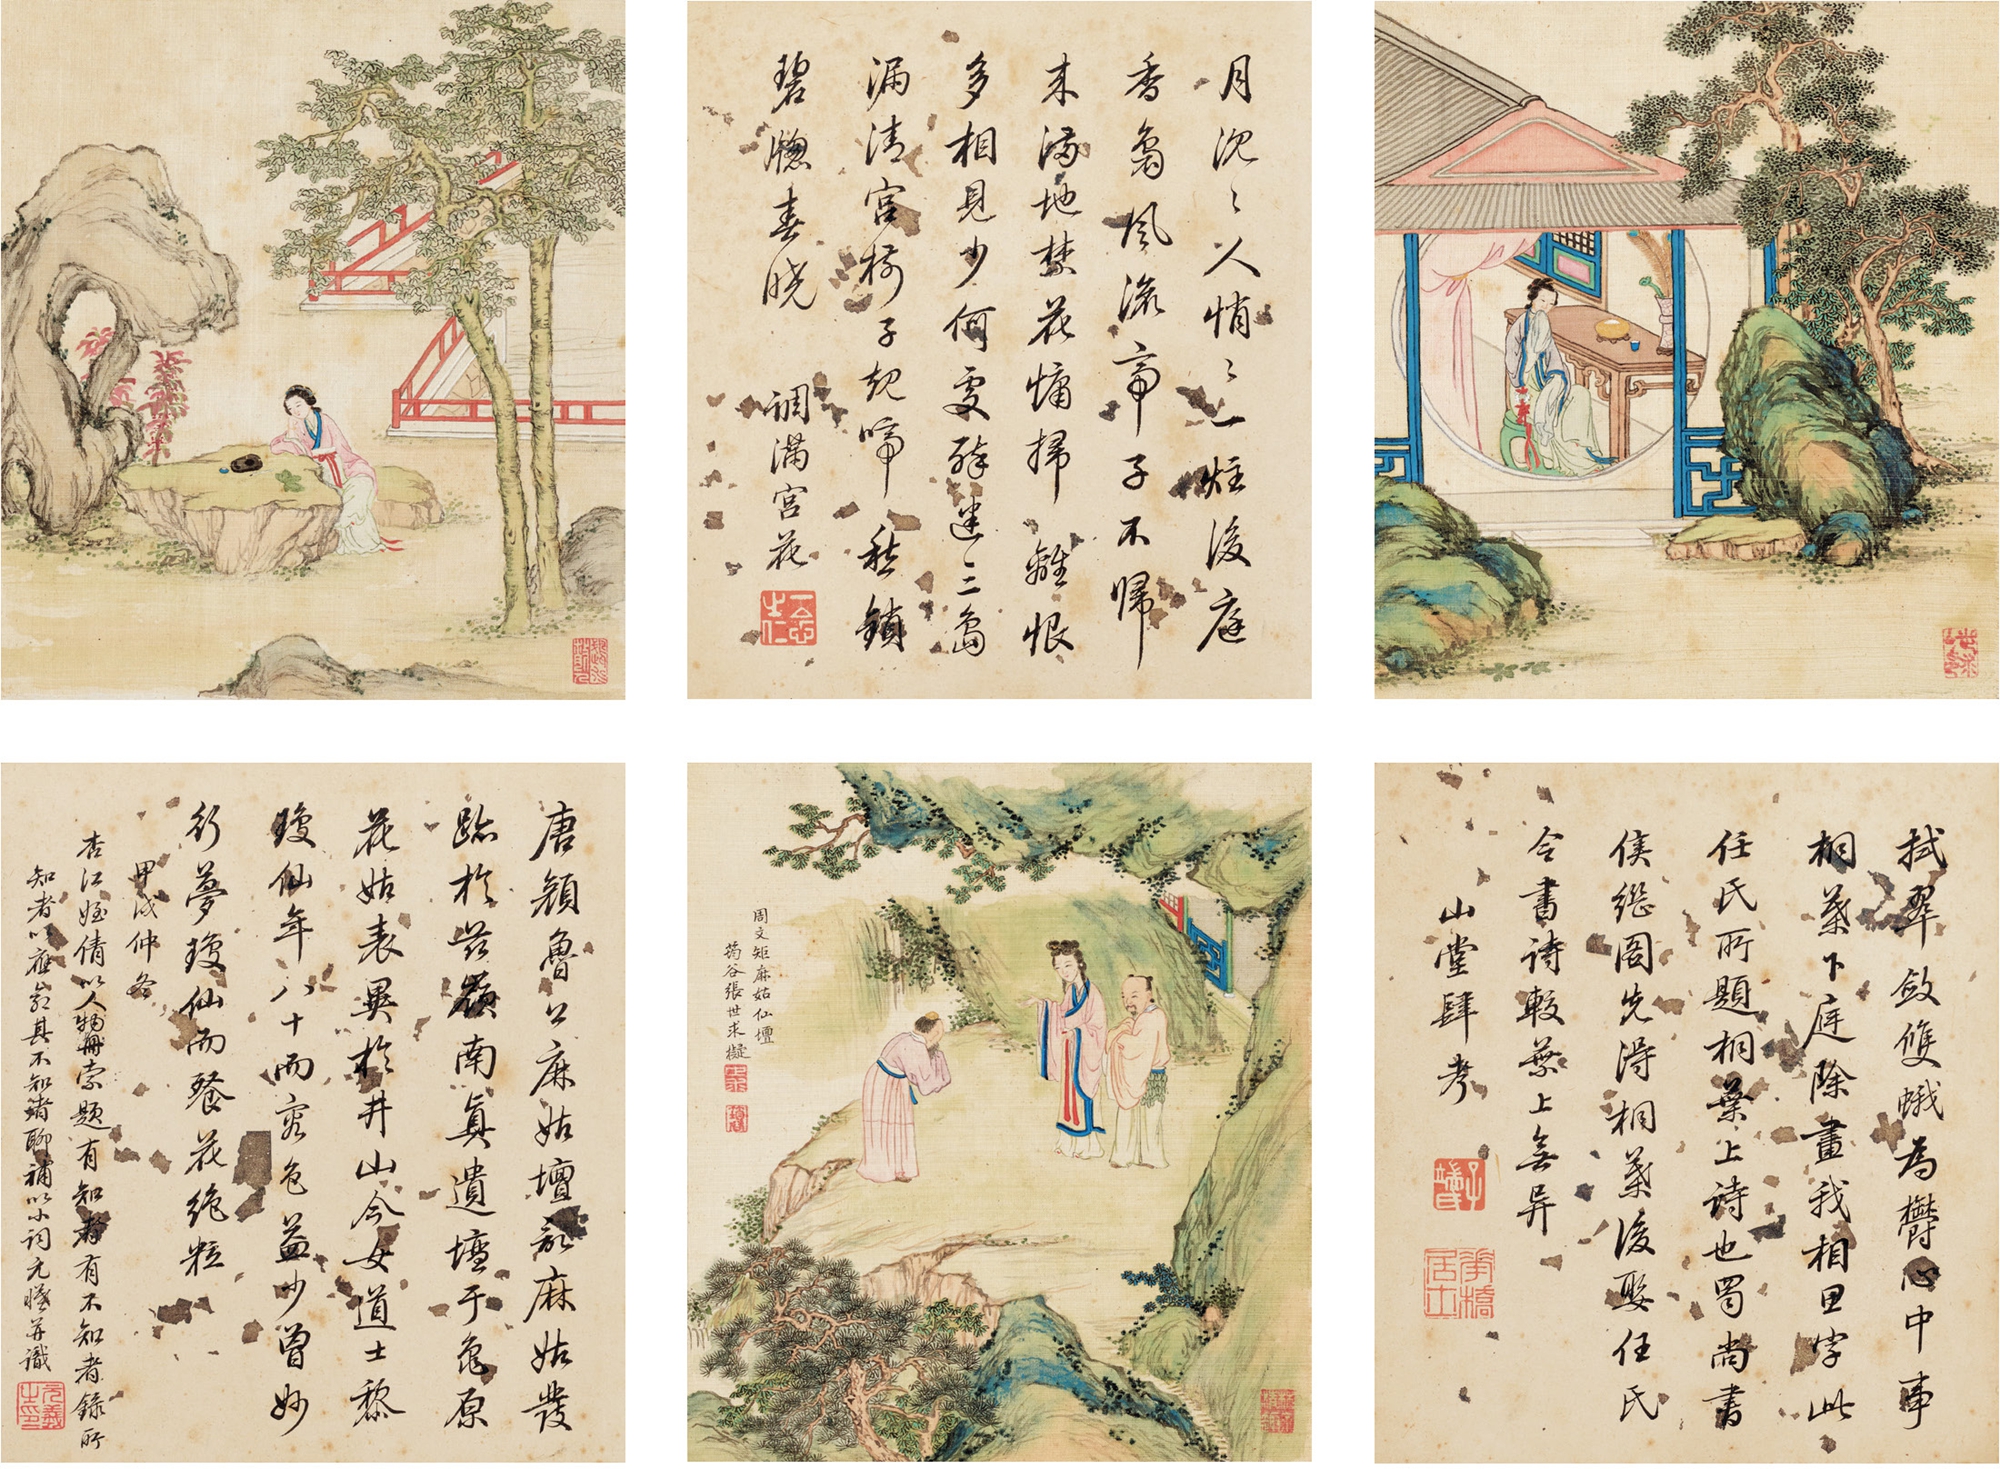 月沉々人悄々一炷後庭
香裊風流帝子不歸
来滿地禁花慵掃離恨
多相見少何處醉迷三島
漏清宮樹子規啼愁鎖
碧窻春曉 調滿宮花
唐顏魯公麻姑壇記麻姑發
跡於茲嶺南真遺壇于龜原
花姑表異於井山今女道士黎
瓊仙年八十而容色益少曾妙
行夢瓊仙而餐花絶粒
甲戌仲冬
杏江姪倩以人物冊索題有知者有不知者錄所
知者以應命其不知者聊補以小詞元㬢并識
周文矩麻姑仙壇
蒟谷張世求擬
拭翠斂雙蛾為欝心中事
桐葉下庭除畫我相思字此
任氏所題桐葉上詩也蜀尚書
侯繼圖先得桐葉後娶任氏
令書詩較葉上無异
山堂肆考